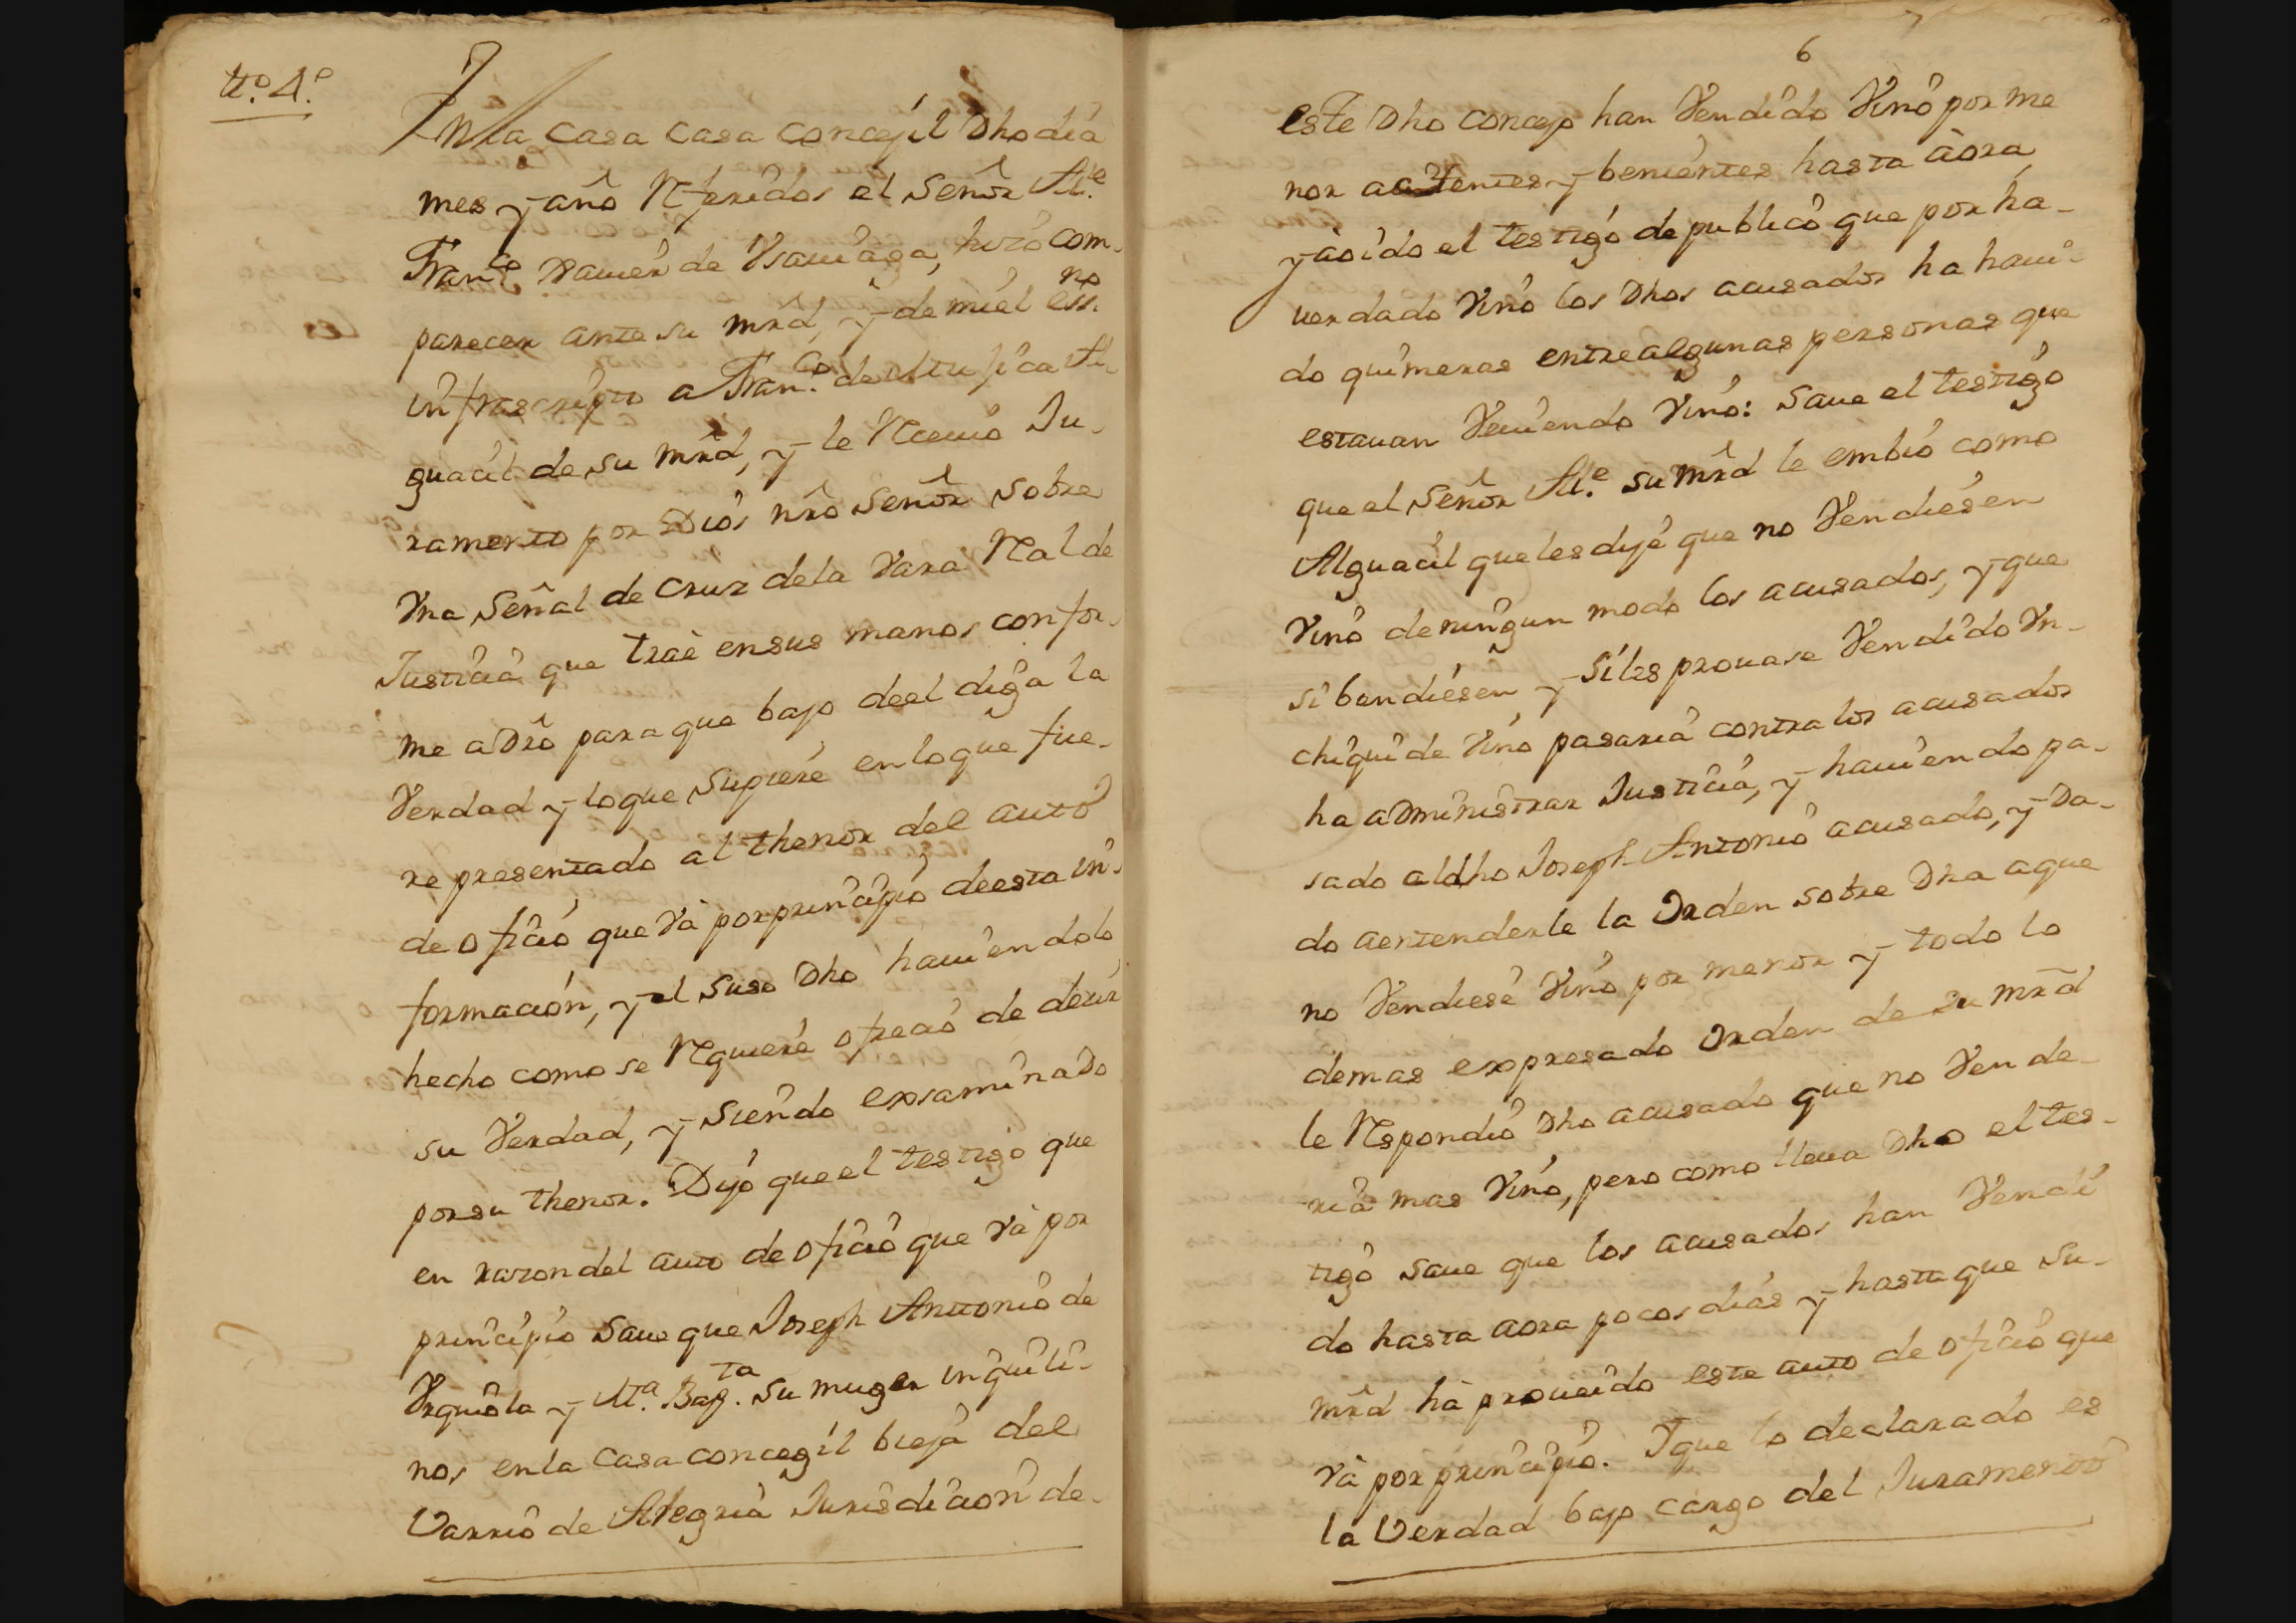 tt.º 4.º
En la Casa Casa concejil Dho dia
mes y año Referidos el Señor Al.e
Fran.co Xavier de Vsauiaga, hizo com-
parecer ante su mrd, y de mi el ess.no
infrascripto a Fran.co de Al-
guacil de su mrd, y le Receuio Ju-
ramento por Dios nrô Señor sobre
Vna Señal de Cruz dela Vara Real de
Justicia que trae en sus manos confor-
me a Drô para que bajo de el diga la
Verdad y lo que supiere en lo que fue-
re presentado al thenor del auto
de oficio que và por principio de esta in-
formación, y el suso Dho hauiendolo
hecho como se Requiere ofrecio de decir
su Verdad, y siendo exsaminado
por su thenor. Dijo que el testigo que
en razon del auto de oficio que và por
principio Saue que Joseph Antonio de
Vrquiola y M.a Bap.ta su muger inquili-
nos en la Casa concegil bieja del
Varrio de Alegria Jurisdicion de
6
este Dho concejo han Vendido Vino por me
nor a  y benientes hasta àora
y àoido el testigo de publico que por ha-
uer dado Vino los Dhos acusados ha haui-
do quimeras entre algunas personas que
estauan Veuiendo Vino: Saue el testigo
que el Señor Al.e su mrd le embio como
Alguacil que les dije que no Vendiesen
Vino de ningun modo los acusados, y que
si bendiesen y si les prouase Vendido Vn-
chiqui de Vino pasaria contra los acusados
ha administrar Justicia, y hauiendo pa-
sado al dho Joseph Antonio acusado, y Da-
do aentenderle la Orden sobre Dha a que
no Vendiese Vino por menor y todo lo
demas expresado Orden de su mrd
le Respondio Dho acusado que no Vende-
ria mas Vino, pero como lleua Dho el tes-
tigo saue que los acusados han Vendi
do hasta aora pocos dias y hasta que su-
mrd hà proueido este auto de oficio que
và por principio. Y que lo declarado es
la Verdad bajo cargo del Juramento